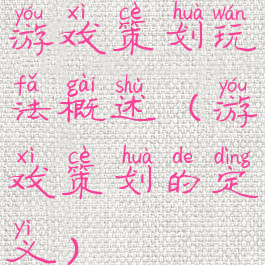 yóu xì cè huà wán
游戏策划玩
fǎ gài shù yóu
法概述（游
xì cè huà de dìng
戏策划的定
yì
义）